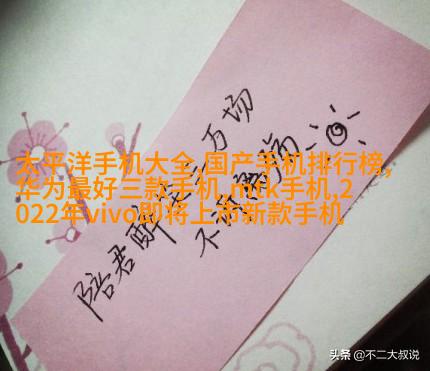 太平洋手机大全,国产手机排行榜,
华为最好三款手机,mtk手机,2
022年vivo即将上市新款手机
陪君醉笑三万场
不诉离殇
头条 @不二大叔说